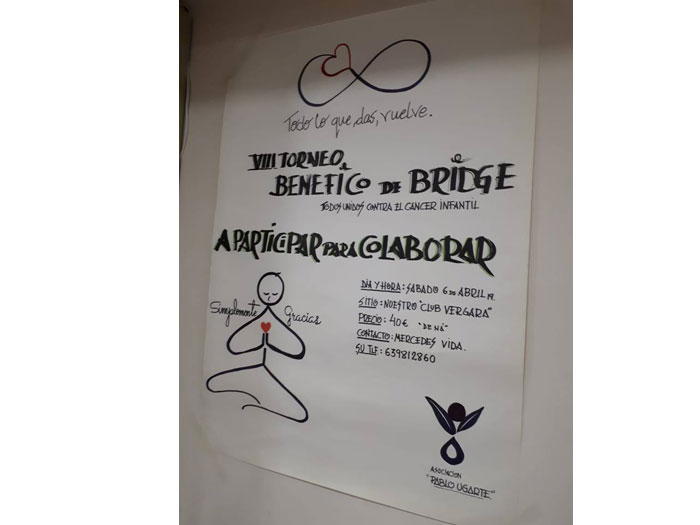 Todo lo que das, vuelve.
VIII TORNEO
BENEFICO DE BRIDGE
TODOS UNIDOS CONTRA EL CANCER INFANTIL
A PARTICIPAR PARA COLABORAR
DIA Y HORA: SABADO 6 DE ABRIL 19.
SITIO: NUESTRO "CLUB VERGARA"
PRECIO: 40€ "DE NÁ"
CONTACTO: MERCEDES VIDA.
SU TLF: 639812860
Simplemente Gracias
ASOCIACION
"PABLO UGARTE"